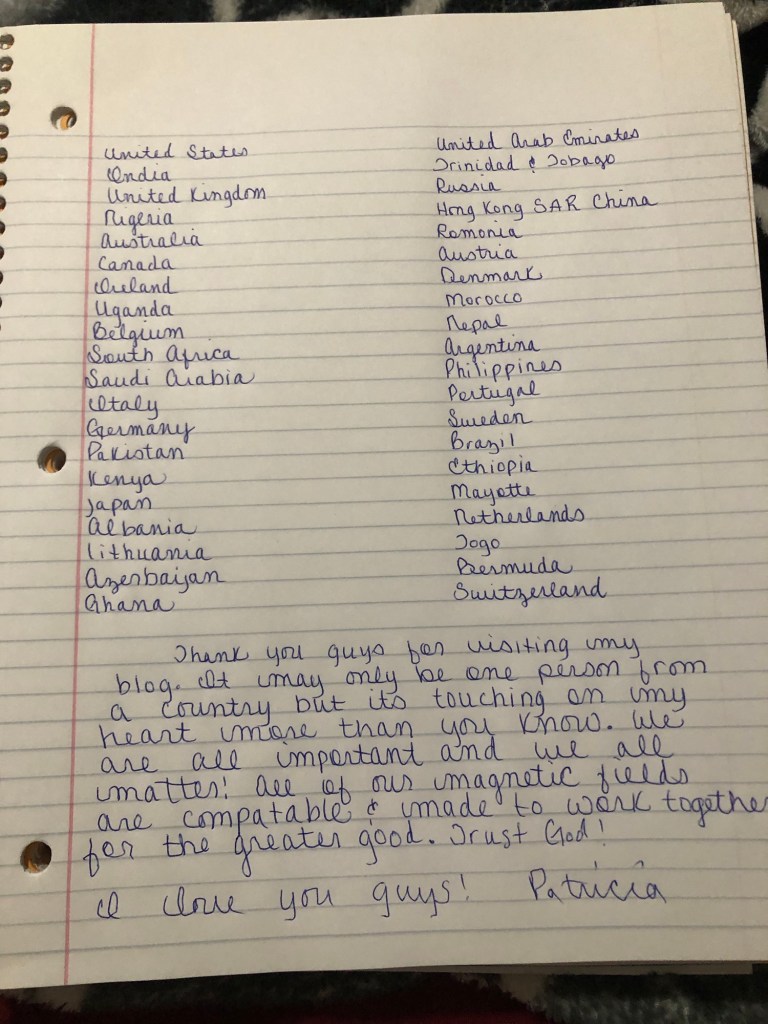 United States
India
United Kingdom
Nigeria
Australia
Canada
Ireland
Uganda
Belgium
South Africa
Saudi Arabia
Italy
Germany
Pakistan
Kenya
Japan
Albania
Lithuania
Azerbaijan
Ghana
United Arab Emirates
Trinidad & Tobago
Russia
Hong Kong SAR China
Romonia
Austria
Denmark
Morocco
Nepal
Argentina
Philippines
Pertugal
Sweden
Brazil
Ethiopia
Mayotte
Netherlands
Togo
Bermuda
Switzerland
Thank you guys for visiting my
blog. It may only be one person from
a country but its touching on my
heart more than you know. We
are all important and we all
matter! All of our magnetic fields
are compatable & made to work together
for the greater good. Trust God!
I love you guys! Patricia